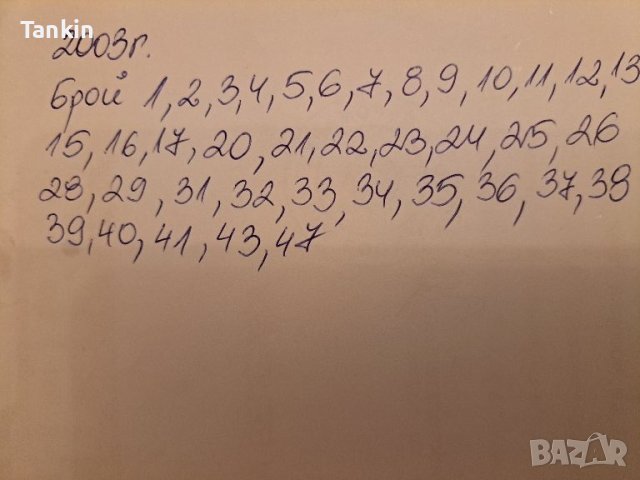 Tankin
2003г.
брой 1, 2, 3, 4, 5, 6, 7, 8, 9, 10, 11, 12, 13
15, 16, 17, 20, 21, 22, 23, 24, 25, 26
28, 29, 31, 32, 33, 34, 35, 36, 37, 38
39, 40, 41, 43, 47
BAZAR